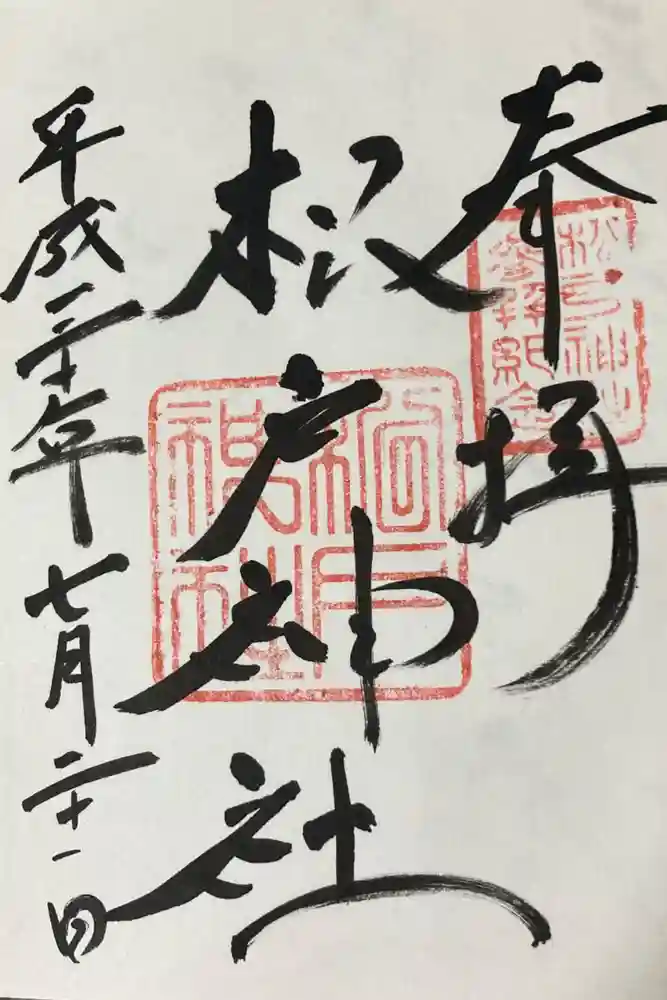 奉拝
松戸神社参拝記念
松戸神社
松戸神社
平成三十年七月二十一日